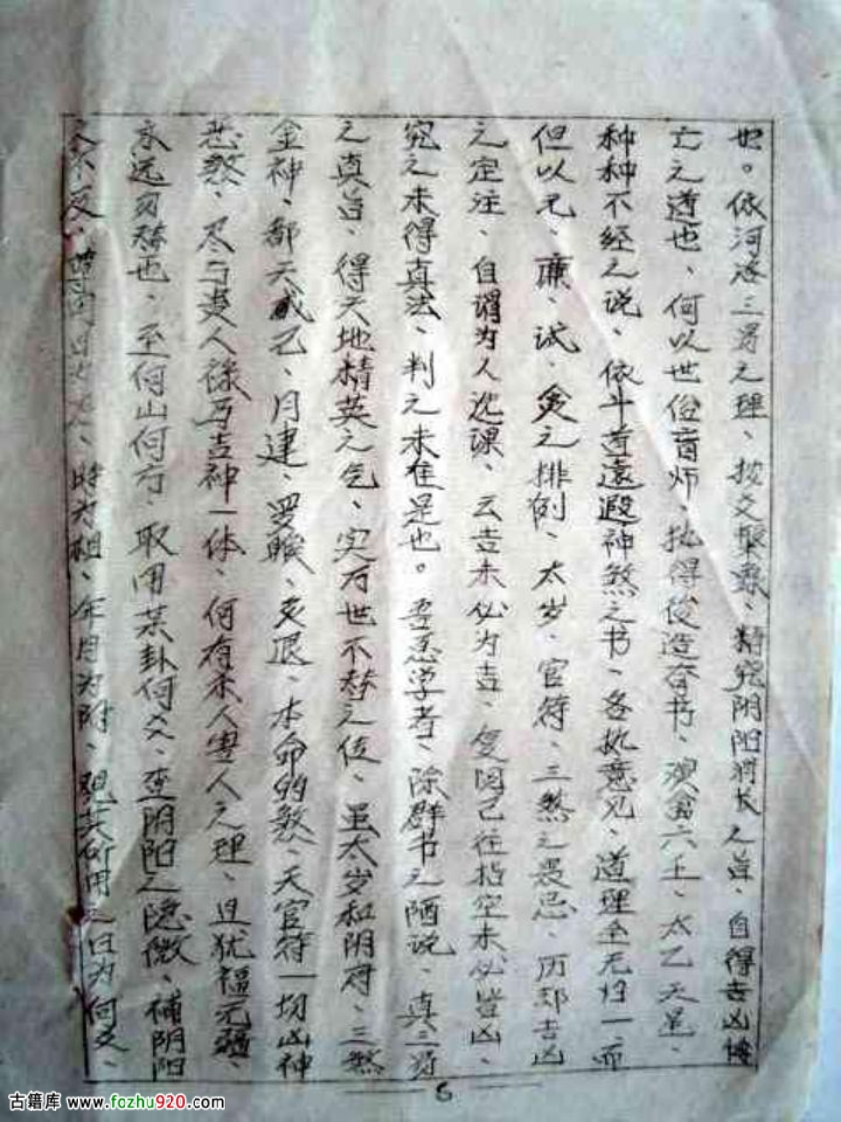 也。依河洛三易之理、按爻聚象、精究阴阳消长之旨、自得吉凶
亡之道也、何以世俗盲师、执得后造奋书、演禽六壬、太乙天星、
种种不经之说、依斗首远遐神煞之书、各执意见、道理全无归一而
但以元、廉、武、贪之排例、太岁、官符、三煞之畏忌、历却吉凶
之定注、自谓为人选课、云吉未必为吉、复因己往指空未必皆凶、
究之未得真法、判之未准是也。吾愿学者、除群书之陋说、真三易
之真旨、得天地精英之气、实万世不替之位、虽太岁和阴府、三煞
金神、都天戊己、月建、罗睺、炙退、本命的煞、天官符一切凶神
恶煞、尽与贵人禄马吉神一体、何有杀人害人之理、且犹福无疆、
永远勿替也、至何山何方、取用某卦何爻、查阴阳之隐微、补阴阳
之不及、时为粗、年月为附、观其所用之日为何爻、
6
古籍库 www.fczhu920.com